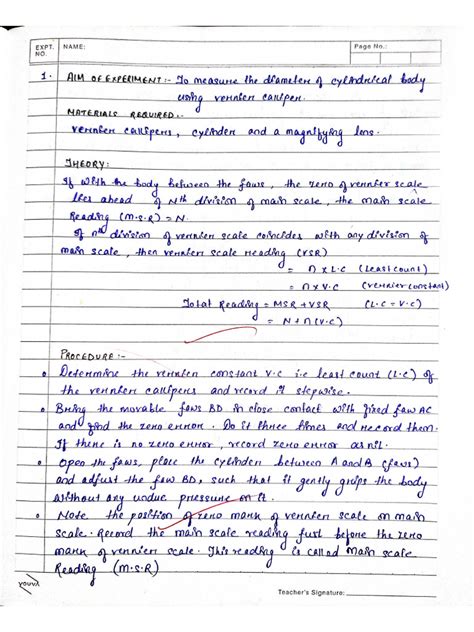 EXPT. NO. NAME: Page No.:
1. AIM OF EXPERIMENT:- To measure the diameter of cylindrical body
using vernier calliper.
MATERIALS REQUIRED:-
vernier callipers, cylinder and a magnifying lens.
THEORY:
If with the body between the jaws, the zero of vernier scale
lies ahead of Nth division of main scale, the main scale
Reading (M.S.R) = N.
If nth division of vernier scale coincides with any division of
main scale, then vernier scale reading (VSR)
= n x L.C (least count)
= n x V.C (vernier constant)
Total Reading = MSR + VSR (L.C = V.C)
= N + n (V.C)
PROCEDURE:-
Determine the vernier constant V.C i.e least count (L.C) of
the vernier callipers and record it stepwise.
Bring the movable jaws BD in close contact with fixed jaw AC
and find the zero error. Do it three times and record them.
If there is no zero error, record zero error as nil.
Open the jaws, place the cylinder between A and B (jaws)
and adjust the jaw BD, such that it gently grips the body
without any undue pressure on it.
Note the position of zero mark of vernier scale on main
scale. Record the main scale reading just before the zero
mark of vernier scale. This reading is called main scale
Reading (M.S.R)
youva
Teacher's Signature: